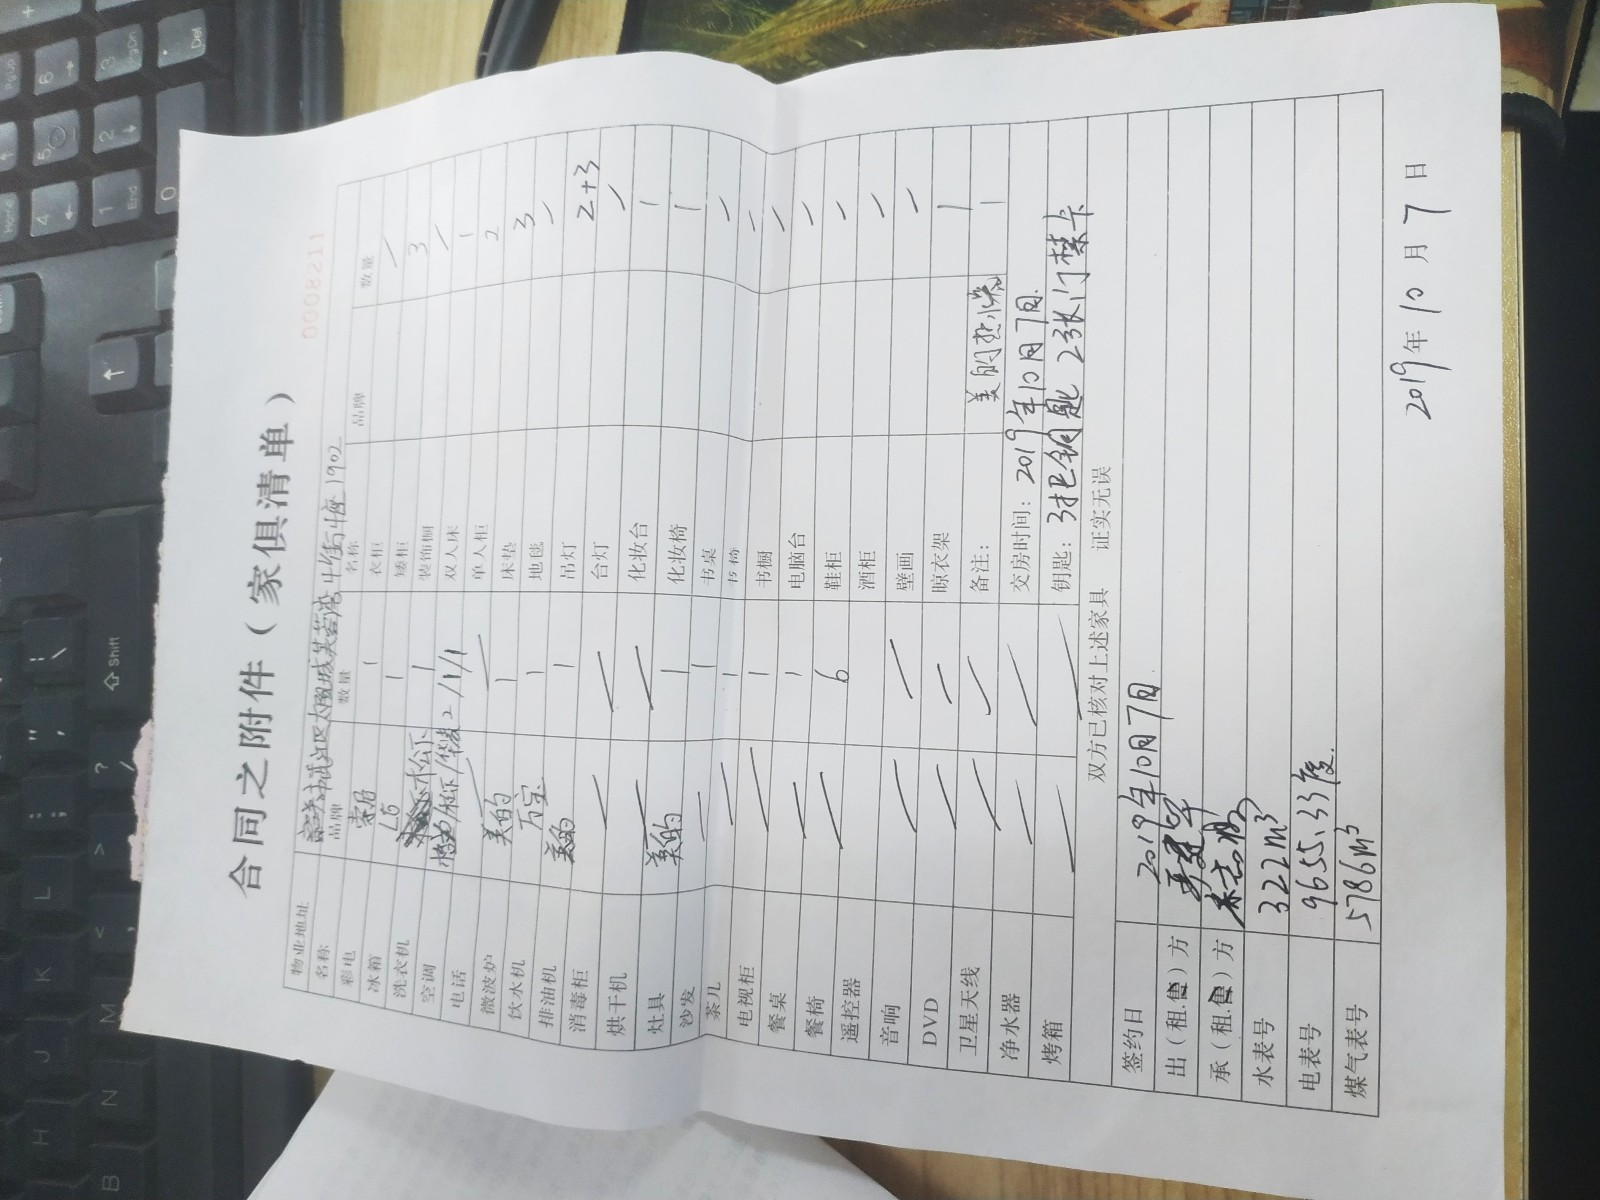 合同之附件（家俱清单）
0008211
物业地址 1902
名称 品牌 数量 名称 品牌 数量
彩电 1 衣柜
冰箱 LG 1 矮柜 3
洗衣机 装饰橱
空调 双人床 1
电话 单人柜 2
微波炉 美的 1 床垫 3
饮水机 万宝 1 地毯
排油机 美的 1 吊灯 2+3
消毒柜 台灯
烘干机 化妆台 1
灶具 美的 1 化妆椅 1
沙发 1 书桌
茶几 1 书椅
电视柜 1 书橱
餐桌 1 电脑台
餐椅 6 鞋柜
遥控器 酒柜
音响 壁画
DVD 晾衣架 1
卫星天线 备注： 美的 1
净水器 交房时间：2019年10月7日.
烤箱 钥匙：3把钥匙 2张门禁卡
双方已核对上述家具 证实无误
签约日 2019年10月7日.
出（租.售）方
承（租.售）方
水表号 322m³
电表号 9655.33度.
煤气表号 5786m³
2019年10月7日